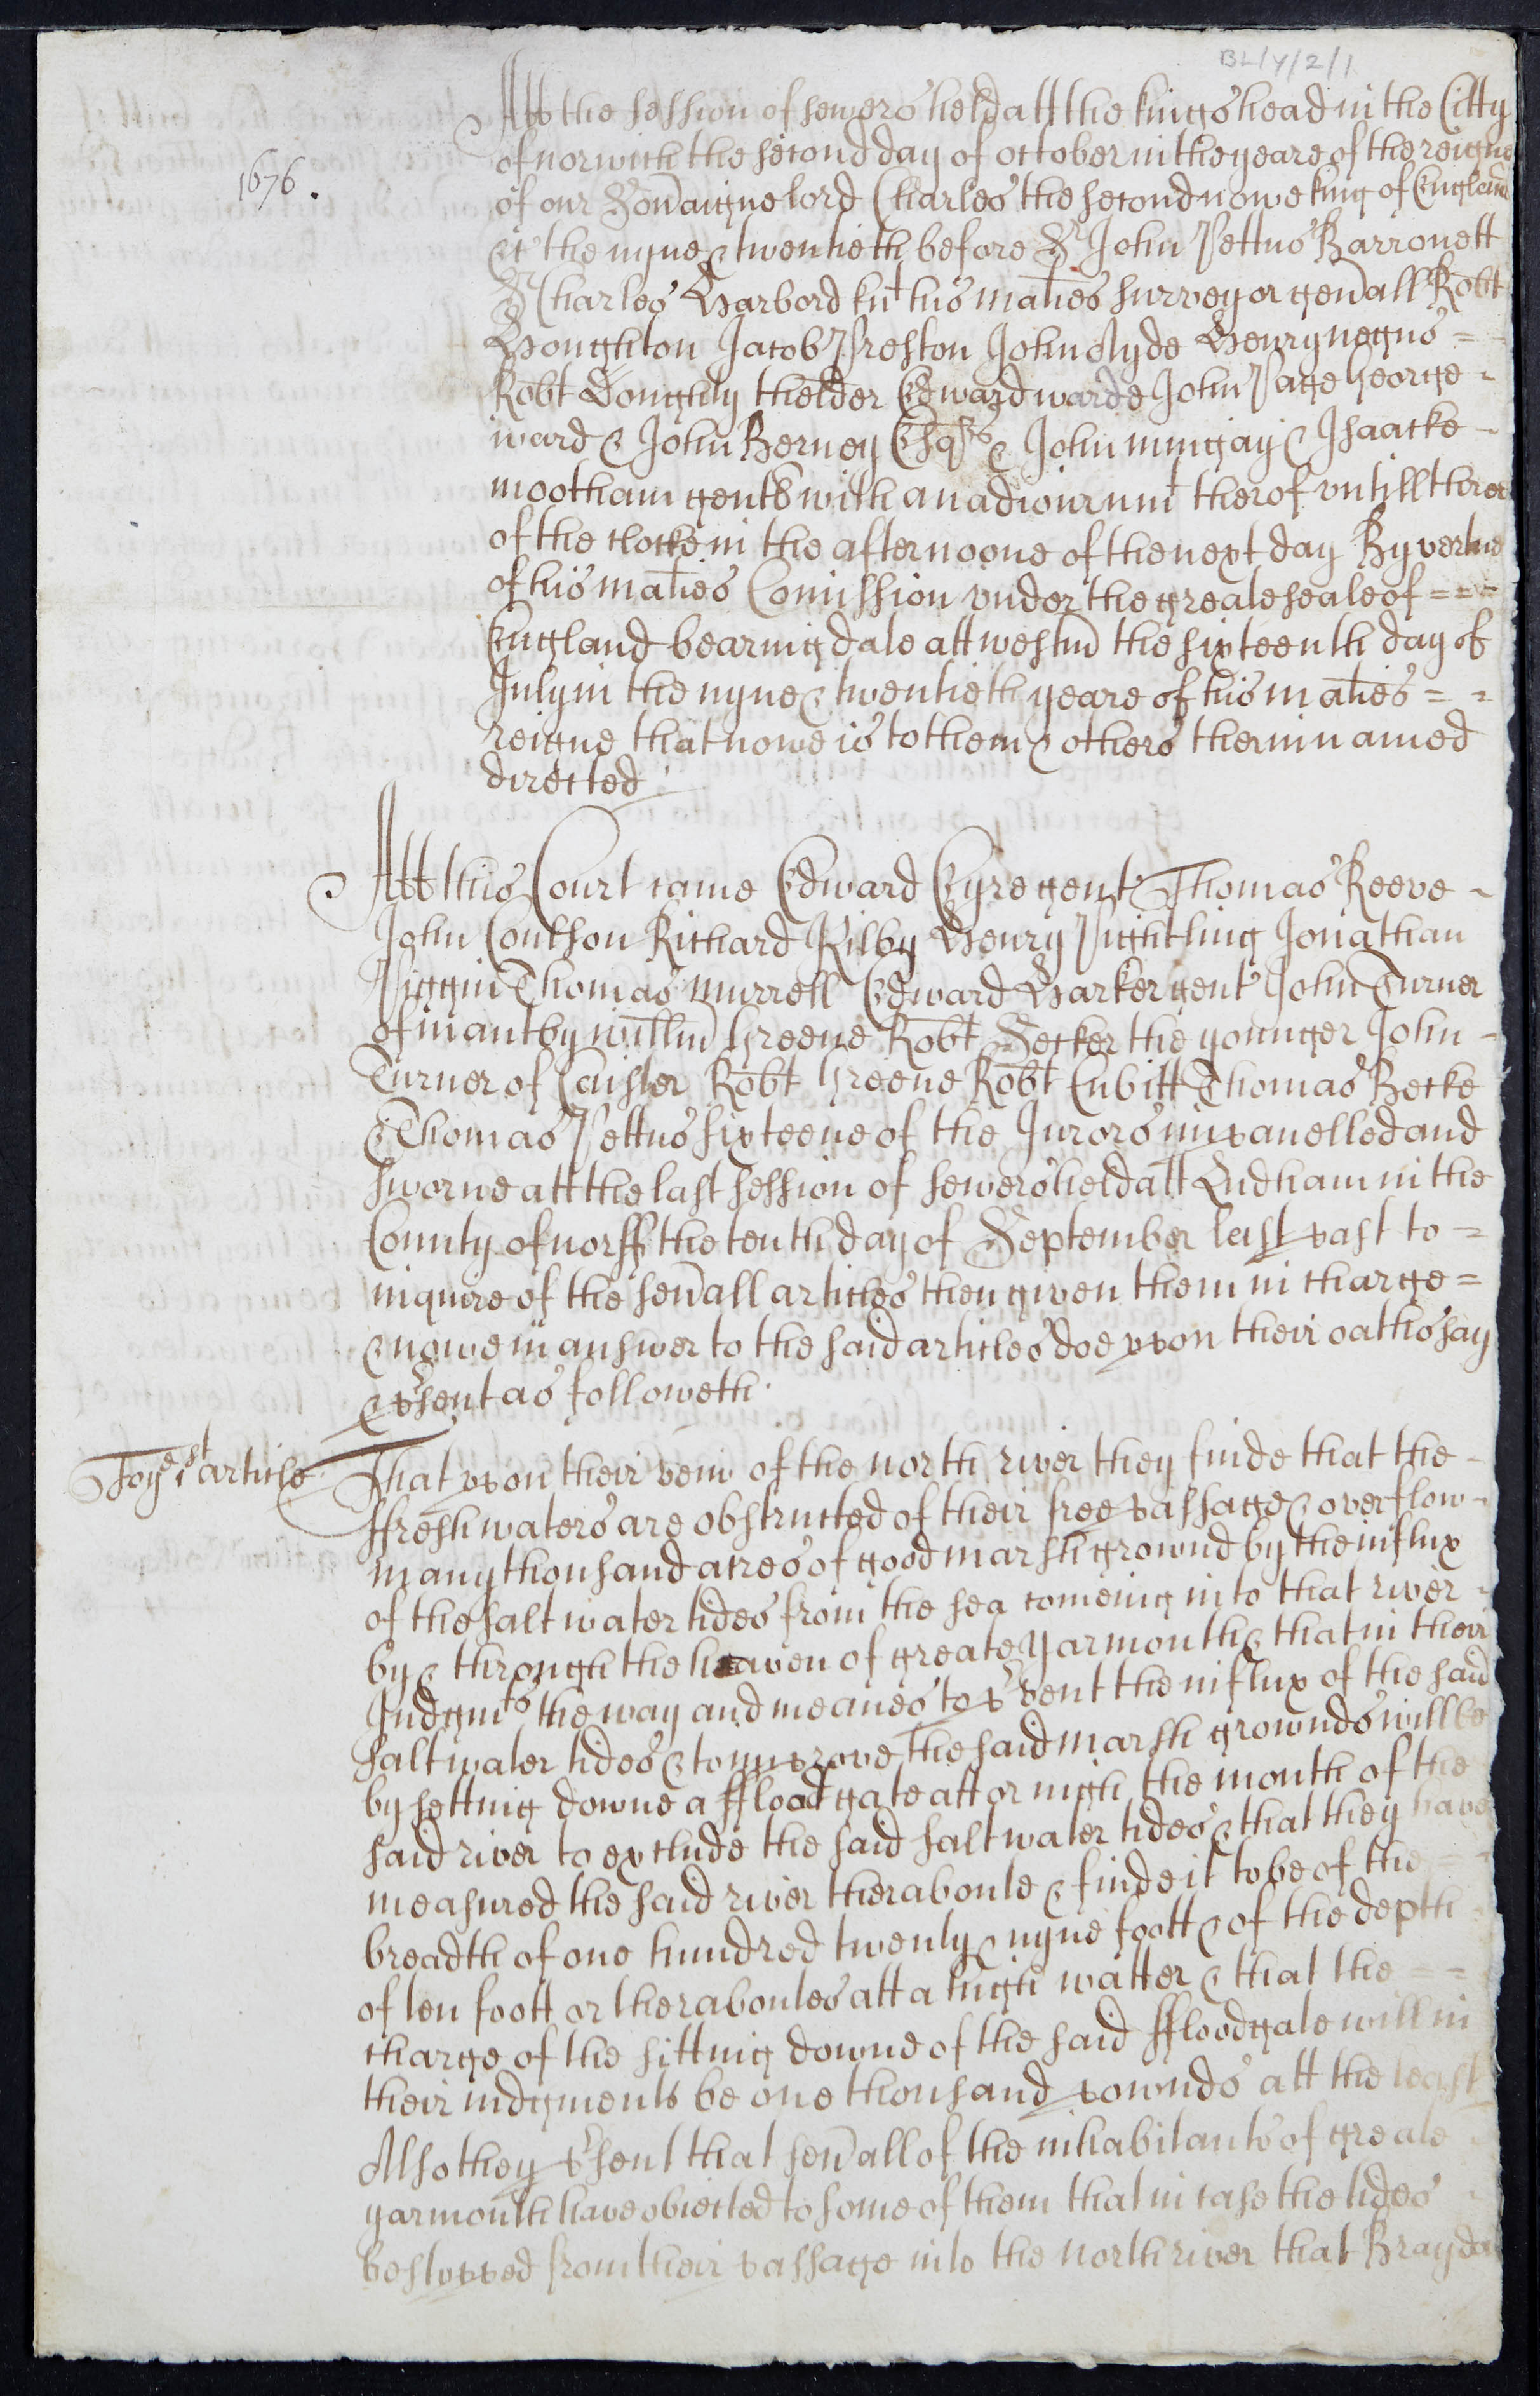 BL/Y/2/1
Att the session of sewers held att the kings head in the Citty
of norwich the second day of october in the yeare of the reigne
1676.
of our Sovāigne lord Charles the second nowe king of England
&c the nyne & twentieth before Sr John Pettus Barronett
Sr Charles Harbord knt his maties surveyor genāll Robt
Houghton Jacob Preston John Hyde Henry negus =
Robt Doughty thelder Edward warde John Page George
ward & John Berney Esqrs & John mingay & Isaacke
mootham gents with an adiournmt therof vntill three
of the clocke in the afternoone of the next day By vertue
of his maties Comission vnder the greate seale of = = =
England bearing date att westm̄ the sixteenth day of
July in the nyne & twentieth yeare of his maties = =
reigne that nowe is to them & others therin named
directed
Att this Court came Edward Eyre gent Thomas Reeve
John Coulson Richard Kilby Henry Nightling Jonathan
Piggin Thomas Murrell Edward Barker gent John Turner
of mautby willm̄ Greene Robt Secker the younger John
Turner of Caister Robt Greene Robt Cubitt Thomas Becke
& Thomas Pettus sixteene of the Jurors impanelled and
sworne att the last session of sewers held att Ludham in the
County of norff the tenth day of September last past to =
inquire of the sev̄all articles then given them in charge =
& nowe in answer to the said articles doe vpon their oathes say
& psent as followeth
To ye 1st article
That vpon their veiw of the north river they finde that the
ffresh waters are obstructed of their free passage & overflow
many thousand acres of good marsh grownd by the influx
of the salt water tides from the sea comeing into that river
by & through the haven of greate yarmouth & that in their
Judgmts the way and meanes to pvent the influx of the said
salt water tides & to improve the said marsh grownds will be
by setting downe a ffloodgate att or nigh the mouth of the
said river to exclude the said salt water tides & that they have
measured the said river theraboute & finde it to be of the
breadth of one hundred twenty & nyne foott & of the depth
of ten foott or theraboutes att a high watter & that the = =
charge of the sitting downe of the said ffloodgate will in
their iudgments be one thousand pownds att the least
Also they psent that sev̄all of the inhabitants of greate
yarmouth have obiected to some of them that in case the tides
be stopped from their passage into the north river that Braydon